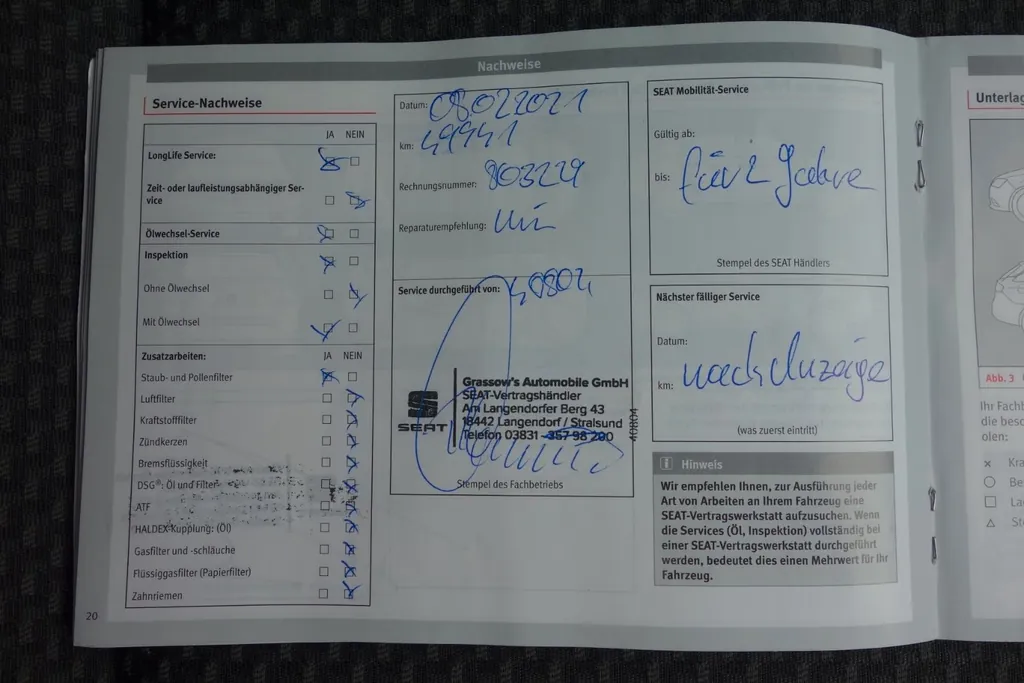 Nachweise
Service-Nachweise
JA NEIN
LongLife Service:
Zeit- oder laufleistungsabhängiger Ser-
vice
Ölwechsel-Service
Inspektion
Ohne Ölwechsel
Mit Ölwechsel
Zusatzarbeiten: JA NEIN
Staub- und Pollenfilter
Luftfilter
Kraftstofffilter
Zündkerzen
Bremsflüssigkeit
DSG®: Öl und Filter
ATF
HALDEX-Kupplung: (Öl)
Gasfilter und -schläuche
Flüssiggasfilter (Papierfilter)
Zahnriemen
20
Datum: 08.022021
km: 49941
Rechnungsnummer: 803229
Reparaturempfehlung:
Service durchgeführt von: 40804
Grassow's Automobile GmbH
SEAT-Vertragshändler
Am Langendorfer Berg 43
18442 Langendorf / Stralsund
Telefon 03831 -357 98 200
SEAT
40804
Stempel des Fachbetriebs
SEAT Mobilität-Service
Gültig ab:
bis: für 2 Jahre
Stempel des SEAT Händlers
Nächster fälliger Service
Datum:
km: nach Anzeige
(was zuerst eintritt)
i Hinweis
Wir empfehlen Ihnen, zur Ausführung jeder
Art von Arbeiten an Ihrem Fahrzeug eine
SEAT-Vertragswerkstatt aufzusuchen. Wenn
die Services (Öl, Inspektion) vollständig bei
einer SEAT-Vertragswerkstatt durchgeführt
werden, bedeutet dies einen Mehrwert für Ihr
Fahrzeug.
Unterlag
Abb. 3
Ihr Fachb
die besc
olen:
Kra
Be
La